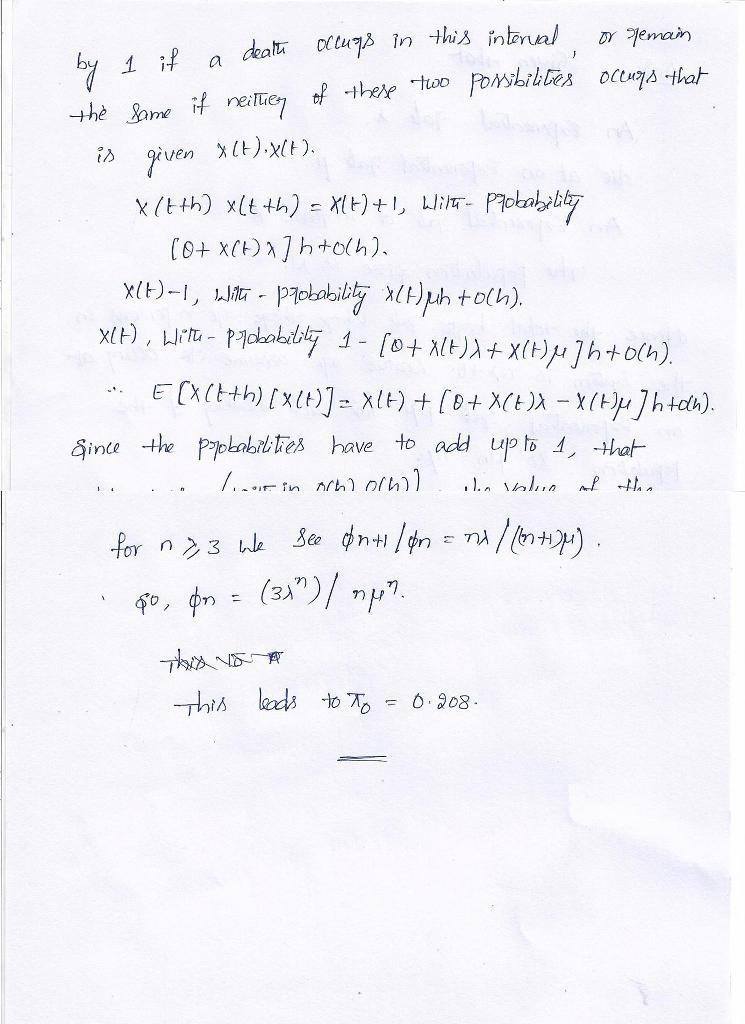 by 1 if a death occurs in this interval, or remain
the same if neither of these two possibilities occurs that
is given X(t).X(t).
X(t+h) X(t+h) = X(t)+1, With - Probability
[θ+ X(t)λ]h+o(h).
X(t)-1, With - probability X(t)μh+o(h).
X(t), With - Probability 1 - [θ+X(t)λ+X(t)μ]h+o(h).
∴ E[X(t+h)[X(t)] = X(t) + [θ+X(t)λ - X(t)μ]h+o(h).
Since the probabilities have to add up to 1, that
in o(h) o(h)] the value of the
for n ≥ 3 we see ϕn+1/ϕn = nλ/((n+1)μ).
So, ϕn = (3λ^n)/ nμ^n.
This leads to π₀ = 0.208.